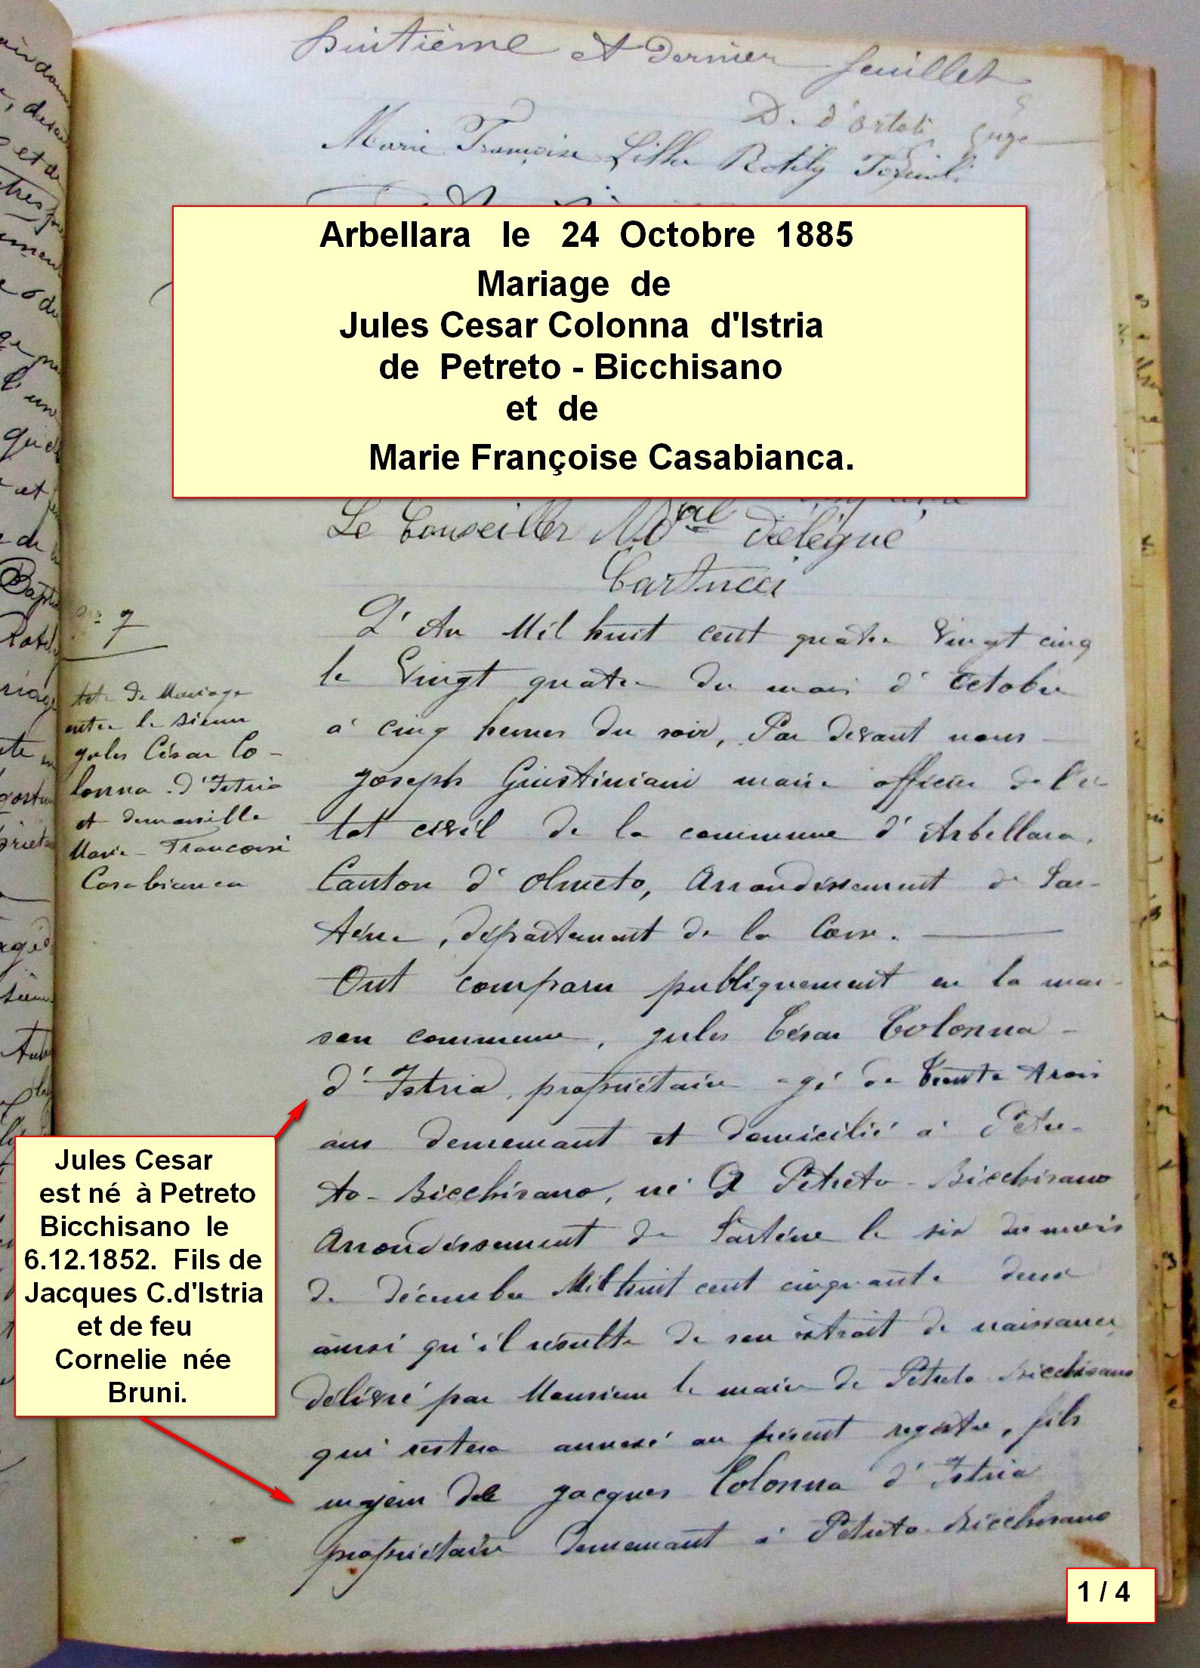 huitième et dernier feuillet
D. d'Ortoli Juge
Marie Françoise Rotily
Arbellara le 24 Octobre 1885
Mariage de
Jules Cesar Colonna d'Istria
de Petreto - Bicchisano
et de
Marie Françoise Casabianca.
Le Conseiller Mal délégué
Cartucci
No 7
Acte de Mariage
entre le sieur
jules César Co-
lonna d'Istria
et demoiselle
Marie Françoise
Casabianca
L'An Mil huit cent quatre vingt cinq
le vingt quatre du mois d'octobre
à cinq heures du soir, Par devant nous
joseph Giustiniani maire officier de l'é-
tat civil de la commune d'Arbellara,
Canton d'Olmeto, arrondissement de Sar-
tène, département de la Corse.
Ont comparu publiquement en la mai-
son commune, jules César Colonna
d'Istria, propriétaire agé de trente trois
ans demeurant et domicilié à Petre-
to-Bicchisano, né à Petreto-Bicchisano
Arrondissement de Sartène le six du mois
de décembre Mil huit cent cinquante deux
ainsi qu'il résulte de son extrait de naissance
délivré par Monsieur le maire de Petreto Bicchisano
qui restera annexé au présent registre, fils
majeur de jacques Colonna d'Istria
propriétaire demeurant à Petreto-Bicchisano
Jules Cesar
est né à Petreto
Bicchisano le
6.12.1852. Fils de
Jacques C.d'Istria
et de feu
Cornelie née
Bruni.
1 / 4